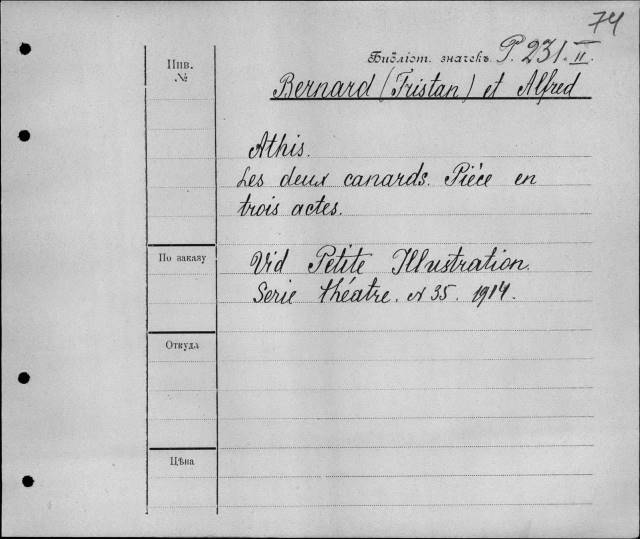 74
Библіот. значекъ P. 231. II.
Инв.
№
Bernard (Tristan) et Alfred
Athis.
Les deux canards. Piéce en
trois actes.
По заказу
Vid Petite Illustration.
Serie théatre. N 35. 1914.
Откуда
Цѣна